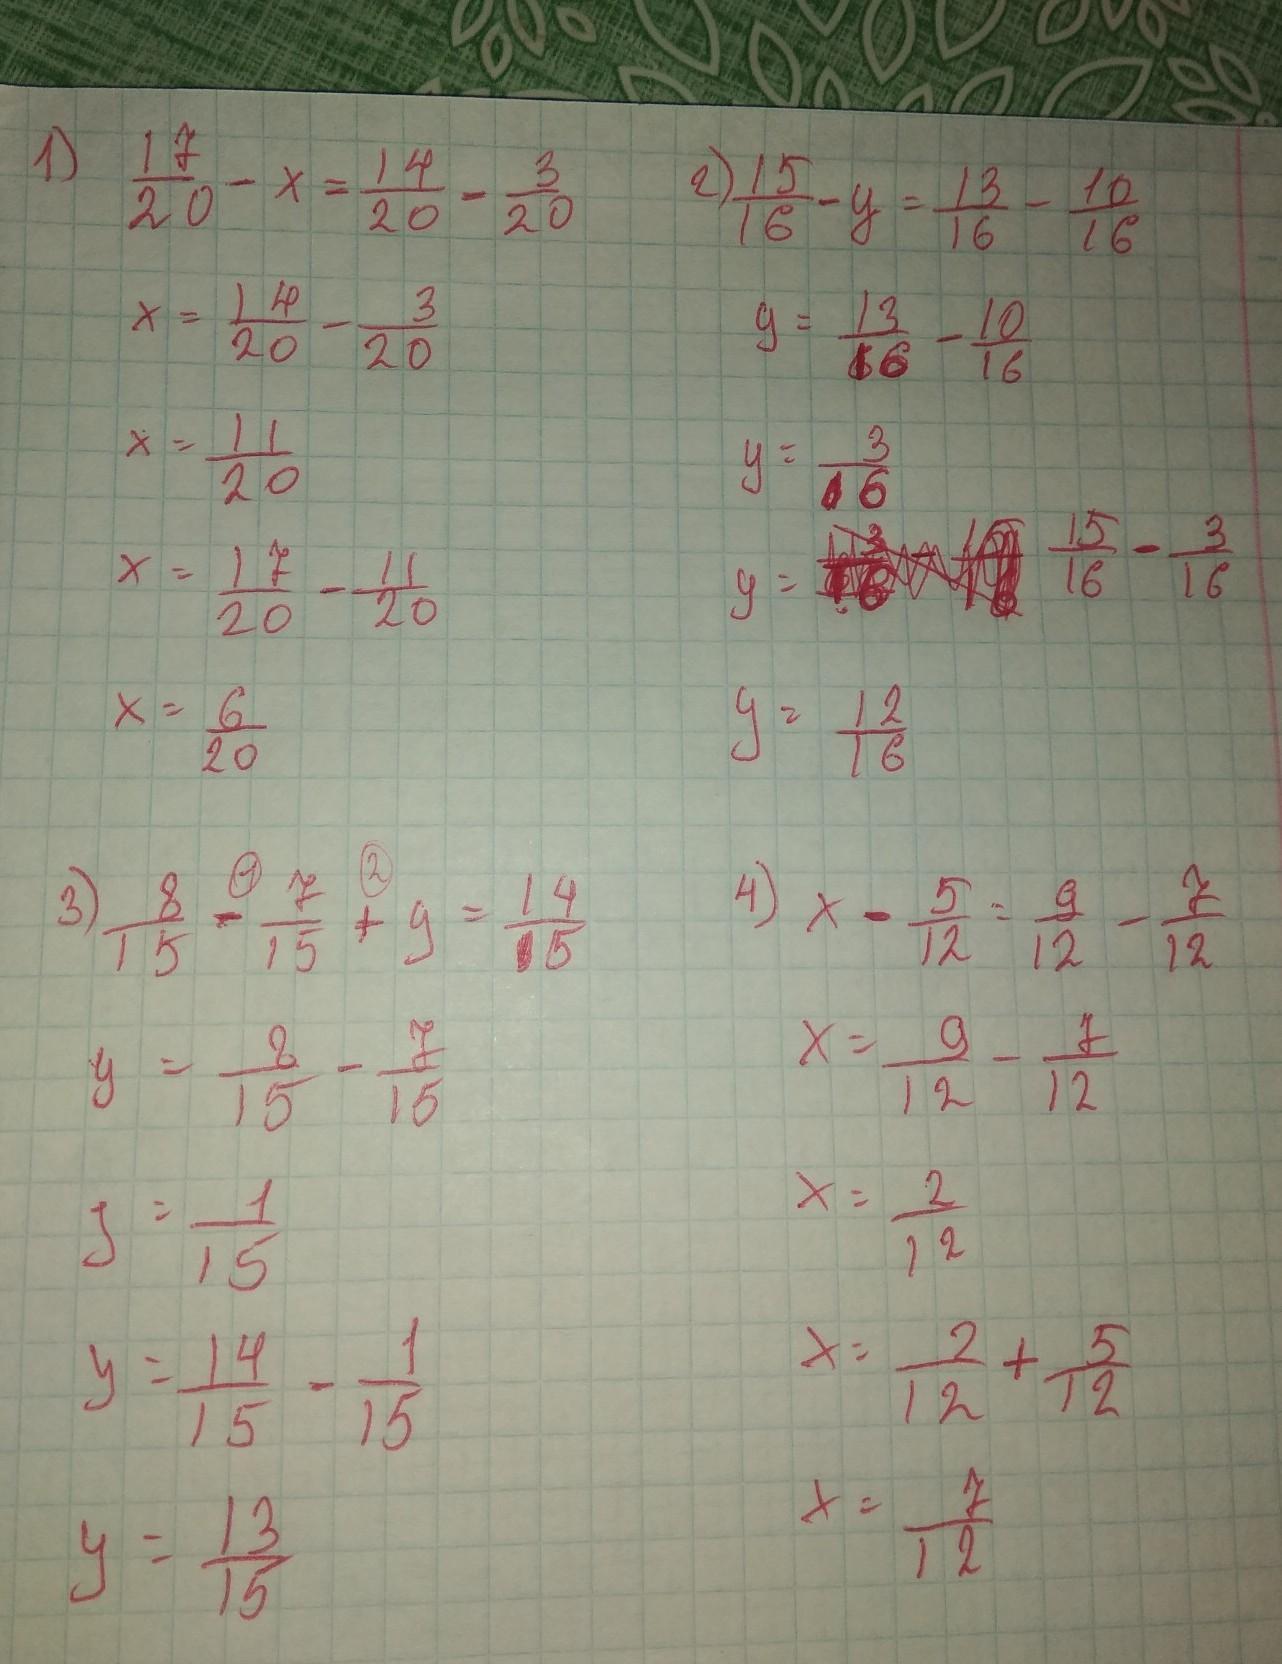 1) 17/20 - x = 14/20 - 3/20
x = 14/20 - 3/20
x = 11/20
x = 17/20 - 11/20
x = 6/20
2) 15/16 - y = 13/16 - 10/16
y = 13/16 - 10/16
y = 3/16
y = 15/16 - 3/16
y = 12/16
3) 8/15 - 7/15 + y = 14/15
1 2
y = 8/15 - 7/15
y = 1/15
y = 14/15 - 1/15
y = 13/15
4) x - 5/12 = 9/12 - 7/12
x = 9/12 - 7/12
x = 2/12
x = 2/12 + 5/12
x = 7/12